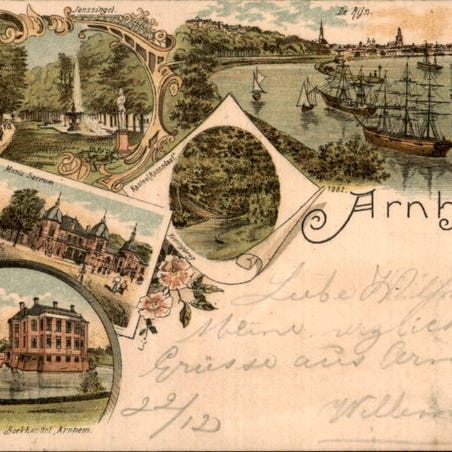 Janssingel.
De Rijn.
Musis Sacrum
Kasteel Rosendaal.
1982.
Arnh
Liebe
Meine
Grüsse aus Arn
22/12
Willem
Boekhandel, Arnhem.